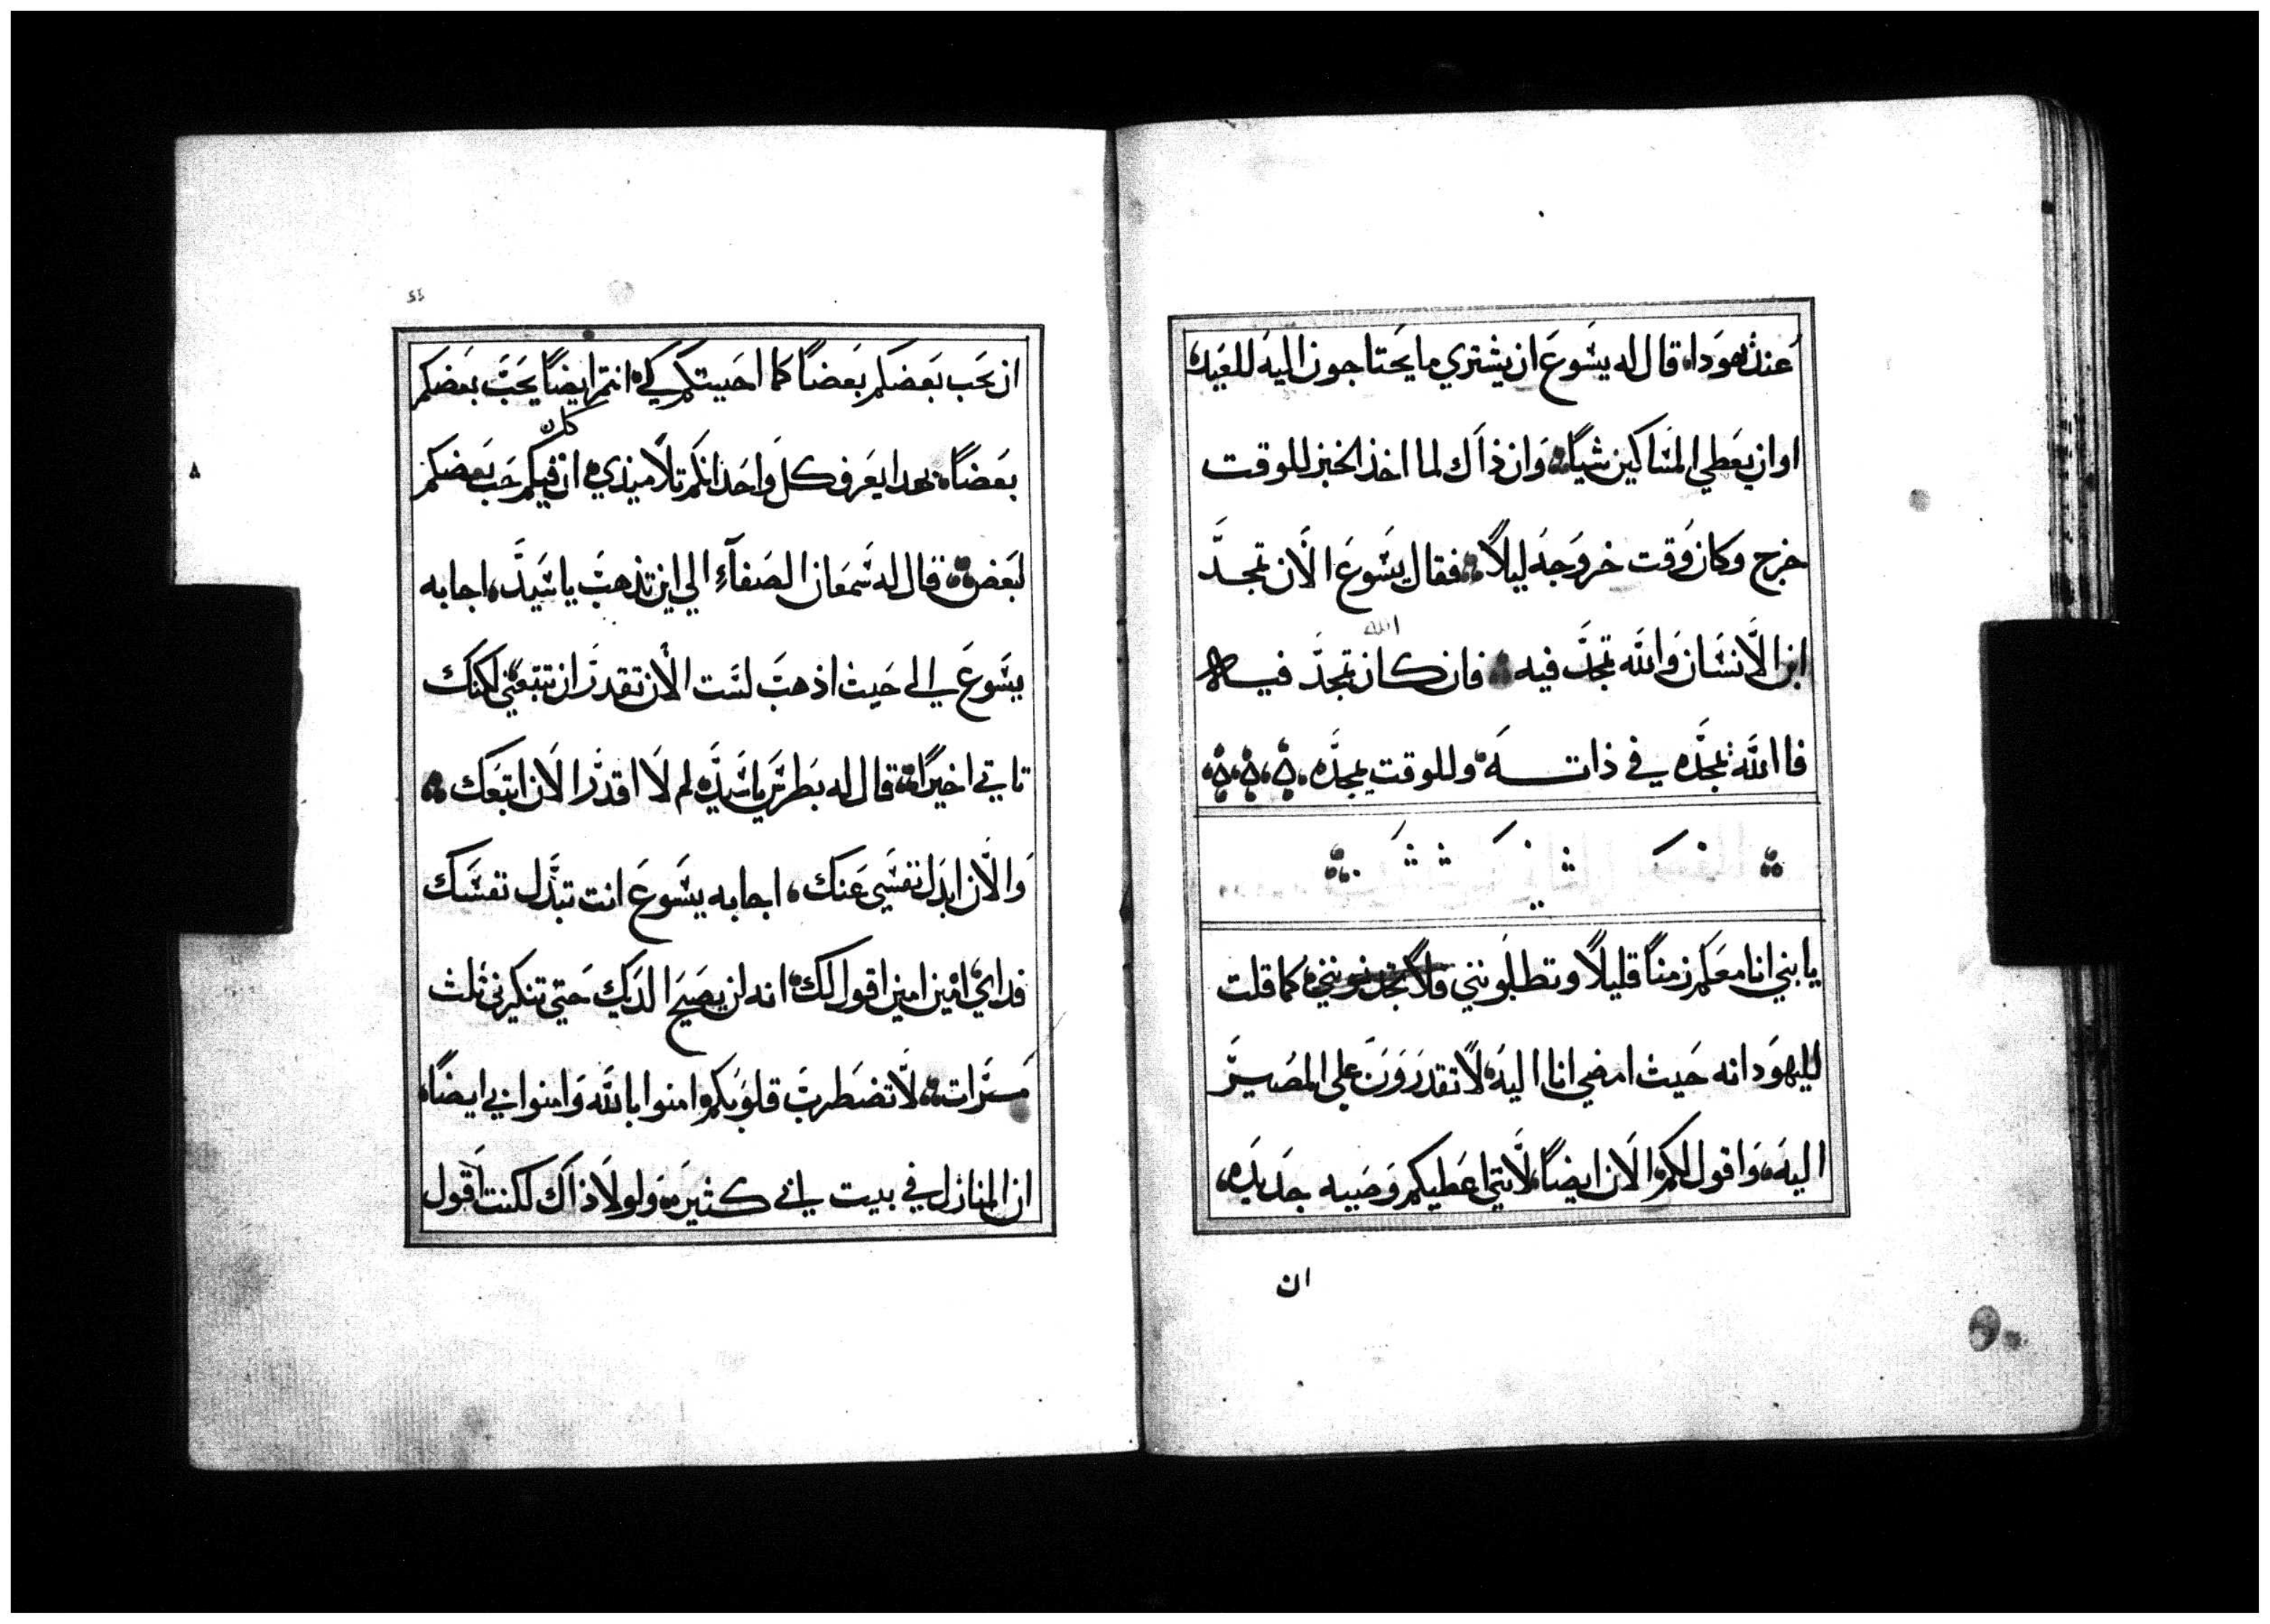 عند يهودا، قال له يسوع ان يشتري ما يحتاجون اليه للعيد،
او ان يعطي المساكين شيًا وان ذاك لما اخذ الخبز للوقت
خرج وكان وقت خروجه ليلاً فقال يسوع الان تمجد
الله
ابن الانسان والله تمجد فيه فان كان تمجد فيه
فاالله يمجده في ذاته وللوقت يمجده
يا بني انا معكم زمنًا قليلاً وتطلبونني فلا تجدونني كما قلت
لليهود انه حيث امضي انا اليه لا تقدرون على المصير
اليه، واقول لكم الان ايضًا، لانني اعطيكم وصيه جديده،
ان
ان يحب بعضكم بعضًا كما احببتكم لكي انتم ايضًا يحب بعضكم
كان
بعضًا، بهدا يعرف كل واحد انكم تلاميذي ان فيكم حب بعضكم
لبعض قال له سمعان الصفآء الي اين تذهب يا سيد، اجابه
يسوع الى حيث اذهب لست الان تقدر ان تتبعني لكنك
تاتي اخيرًا، قال له بطرس يا سيده لم لا اقدر الان اتبعك
والان ابدل نفسي عنك، اجابه يسوع انت تبدل نفسك
فداي امين امين اقول لك انه لن يصيح الديك حتي تنكرني ثلث
مرات، لا تضطرب قلوبكم امنوا بالله وامنوا بي ايضًا،
ان المنازل في بيت ابي كثيره ولولا ذاك لكنت اقول